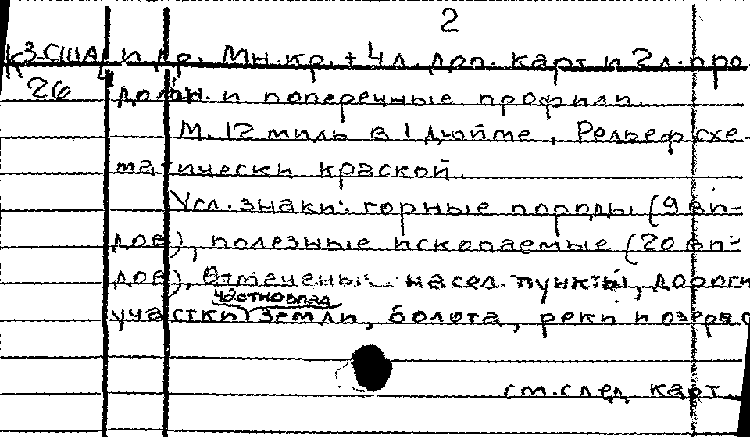 2
К3.США и др. Мн.кр. + 4 л. доп. карт и 2 л. про-
26 дольн. и поперечные профили
М. 12 миль в 1 дюйме, Рельеф схе-
матически краской.
Усл. знаки: горные породы (9 ви-
дов), полезные ископаемые (20 ви-
дов), Отмечены насел. пункты, дороги
участки земли, болота, реки и озера
см. след карт.